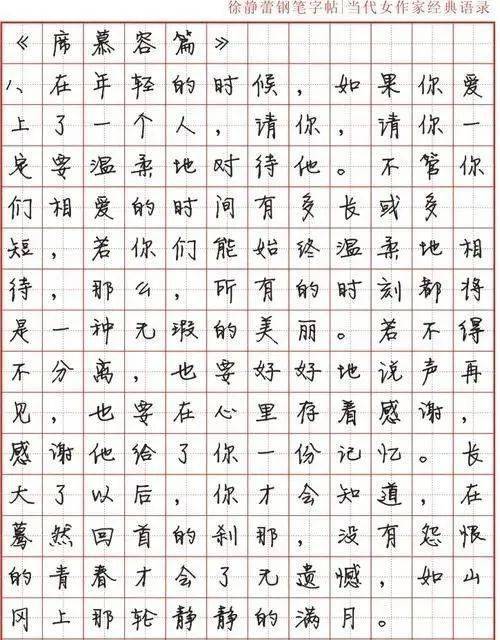 徐静蕾钢笔字帖|当代女作家经典语录
《席慕容篇》
八、在年轻的时候，如果你爱
上了一个人，请你，请你一
定要温柔地对待他。不管你
们相爱的时间有多长或多
短，若你们能始终温柔地相
待，那么，所有的时刻都将
是一种无瑕的美丽。若不得
不分离，也要好好地说声再
见，也要在心里存着感谢，
感谢他给了你一份记忆。长
大了以后，你才会知道，在
蓦然回首的刹那，没有怨恨
的青春才会了无遗憾，如山
冈上那轮静静的满月。